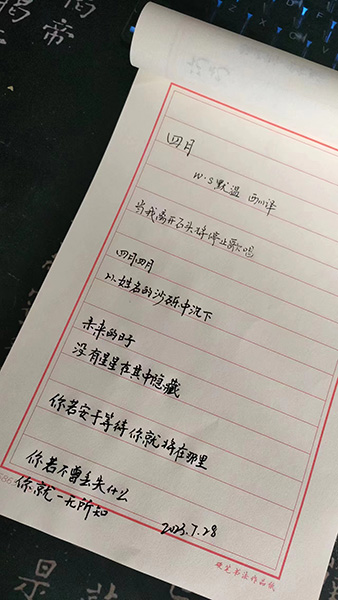 四月
W.S默温 西川译
当我离开石头将停止歌唱
四月四月
从姓名的沙砾中沉下
未来的日子
没有星星在其中隐藏
你若安于等待你就将在那里
你若不曾丢失什么
你就一无所知
2023.7.28
硬笔书法作品纸
帝
是